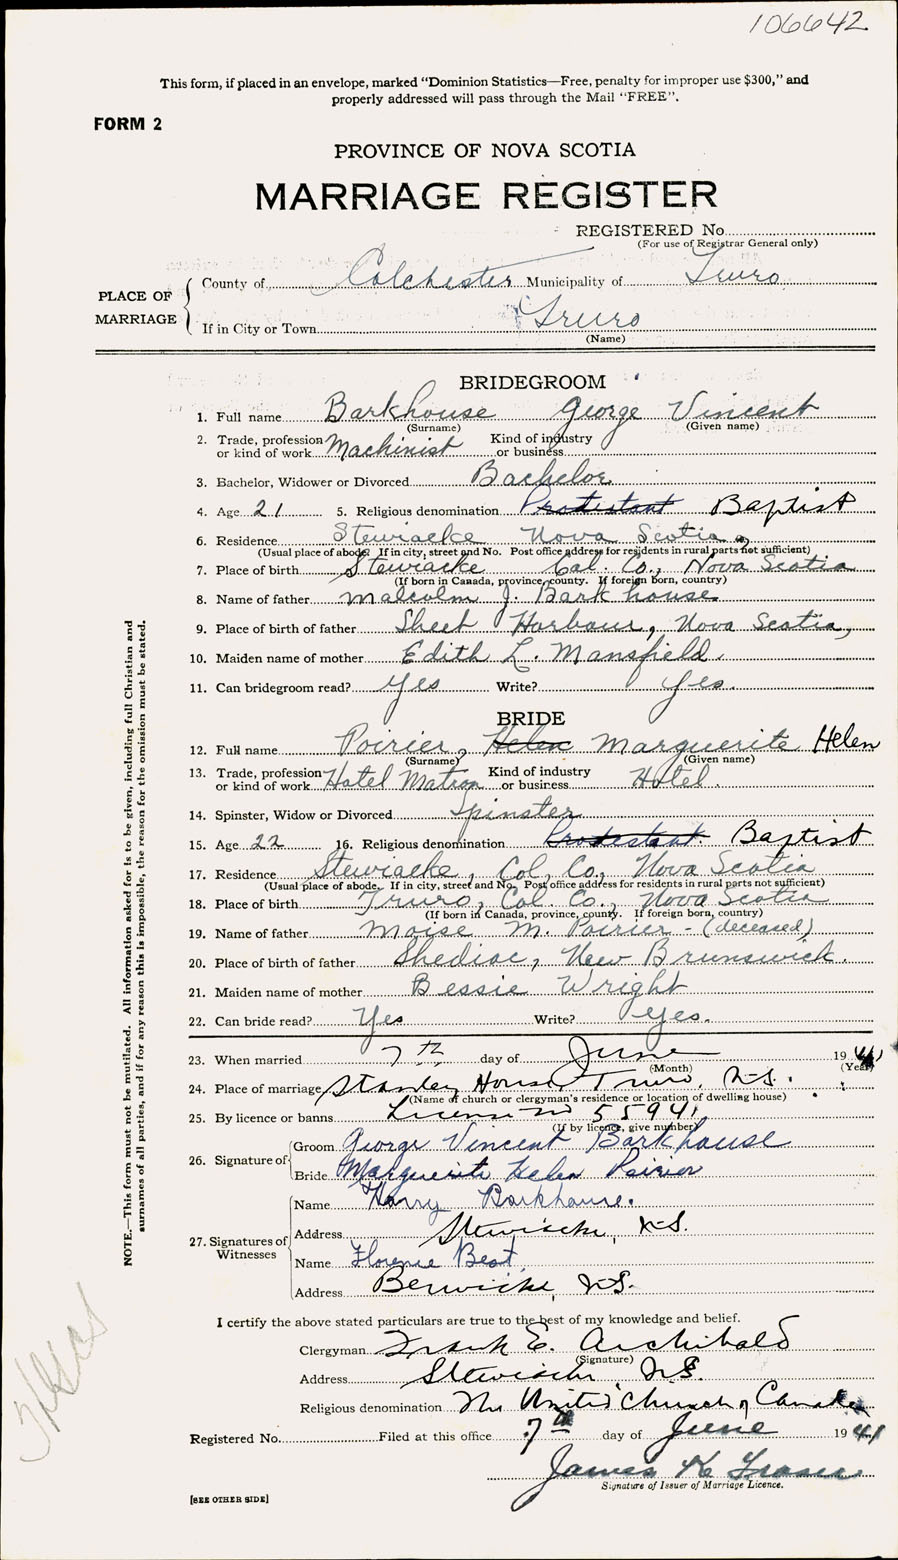 106642
This form, if placed in an envelope, marked "Dominion Statistics—Free, penalty for improper use $300," and
properly addressed will pass through the Mail "FREE".
FORM 2
PROVINCE OF NOVA SCOTIA
MARRIAGE REGISTER
REGISTERED No.
(For use of Registrar General only)
PLACE OF MARRIAGE
County of Colchester Municipality of Truro
If in City or Town Truro
(Name)
BRIDEGROOM
1. Full name Barkhouse George Vincent
(Surname) (Given name)
2. Trade, profession or kind of work Machinist Kind of industry or business
3. Bachelor, Widower or Divorced Bachelor
4. Age 21 5. Religious denomination Protestant Baptist
6. Residence Stewiacke Nova Scotia
(Usual place of abode. If in city, street and No. Post office address for residents in rural parts not sufficient)
7. Place of birth Stewiacke Col. Co., Nova Scotia
(If born in Canada, province, county. If foreign born, country)
8. Name of father Malcolm J. Barkhouse
9. Place of birth of father Sheet Harbour, Nova Scotia,
10. Maiden name of mother Edith L. Mansfield.
11. Can bridegroom read? Yes Write? Yes.
BRIDE
12. Full name Poirier, Helen Marguerite Helen
(Surname) (Given name)
13. Trade, profession or kind of work Hotel Matron Kind of industry or business Hotel.
14. Spinster, Widow or Divorced Spinster
15. Age 22 16. Religious denomination Protestant. Baptist
17. Residence Stewiacke, Col. Co., Nova Scotia
(Usual place of abode. If in city, street and No. Post office address for residents in rural parts not sufficient)
18. Place of birth Truro, Col. Co., Nova Scotia
(If born in Canada, province, county. If foreign born, country)
19. Name of father Moise M. Poirier - (deceased)
20. Place of birth of father Shediac, New Brunswick.
21. Maiden name of mother Bessie Wright
22. Can bride read? Yes Write? Yes.
23. When married 7th day of June 1941
(Month) (Year)
24. Place of marriage Stanley House Truro, N.S.
(Name of church or clergyman's residence or location of dwelling house)
25. By licence or banns License no 55941
(If by licence, give number)
26. Signature of
Groom George Vincent Barkhouse
Bride Marguerite Helen Poirier
27. Signatures of Witnesses
Name Harry Barkhouse.
Address Stewiacke, N.S.
Name Florence Best
Address Berwick, N.S.
I certify the above stated particulars are true to the best of my knowledge and belief.
Clergyman Frank E. Archibald
(Signature)
Address Stewiacke N.S.
Religious denomination The United Church of Canada
Registered No. Filed at this office 7th day of June 1941
James K Fraser
Signature of Issuer of Marriage Licence.
[SEE OTHER SIDE]
NOTE.—This form must not be mutilated. All information asked for is to be given, including full Christian and
surnames of all parties, and if for any reason this is impossible, the reason for the omission must be stated.